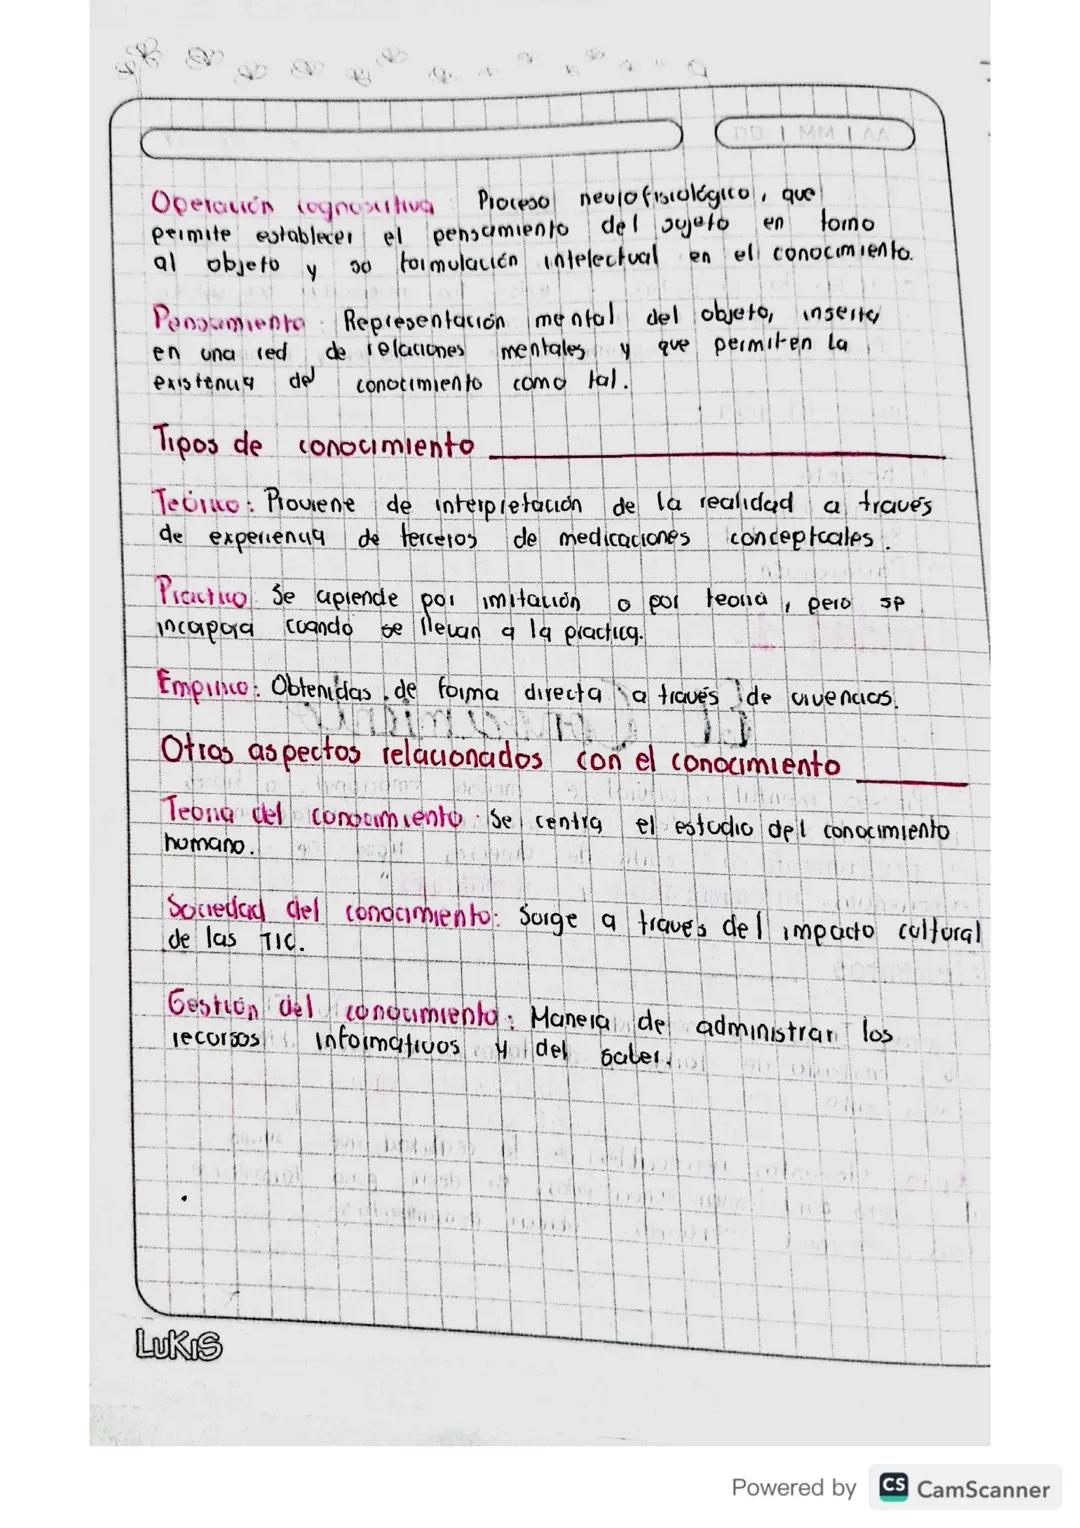 DD | MM | AA
Operación cognoscitiva: Proceso neurofisiológico, que
permite establecer el pensamiento del sujeto en torno
al objeto y so formulación intelectual en el conocimiento.
Pensamiento: Representación mental del objeto, inserta
en una red de relaciones mentales y que permiten la
existencia del conocimiento como tal.
Tipos de conocimiento
Teórico: Proviene de interpretación de la realidad a través
de experiencia de terceros de medicaciones conceptcales.
Practico Se aprende por imitación o por teoria, pero se
incapora cuando se llevan a la practica.
Empirico: Obtenidas de forma directa a través de vivencias.
Otros aspectos relacionados con el conocimiento
Teoria del conocimiento: Se centra el estudio del conocimiento
humano.
Sociedad del conocimiento: Surge a traves del impacto cultural
de las TIC.
Gestión del conocimiento: Manera de administrar los
recorsos informativos y del saber.
LuKiS
Powered by CS CamScanner